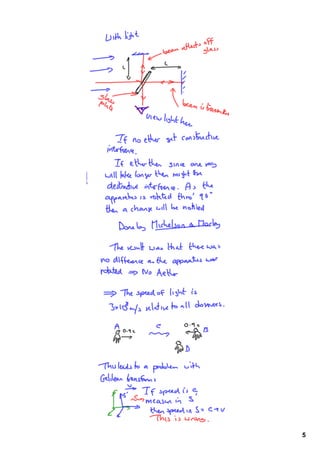 With light
beam reflects off
glass
L
L
glass
plate
beam is transmitted
View light here
If no ether get constructive
interference.
If ether then since one way
will take longer then might be
destructive interference. As the
apparatus is rotated thro' 90°
then a change will be noticed
Done by Michelson & Morley
The result was that there was
no difference as the apparatus was
rotated ⇒ No Aether
⇒ The speed of light is
3×10⁸ m/s relative to all observers.
A c 0.9c B
0.9c
D
This leads to a problem with
Galilean transforms
If speed is c
measured in S'
then speed in S = c+v
This is wrong.
5